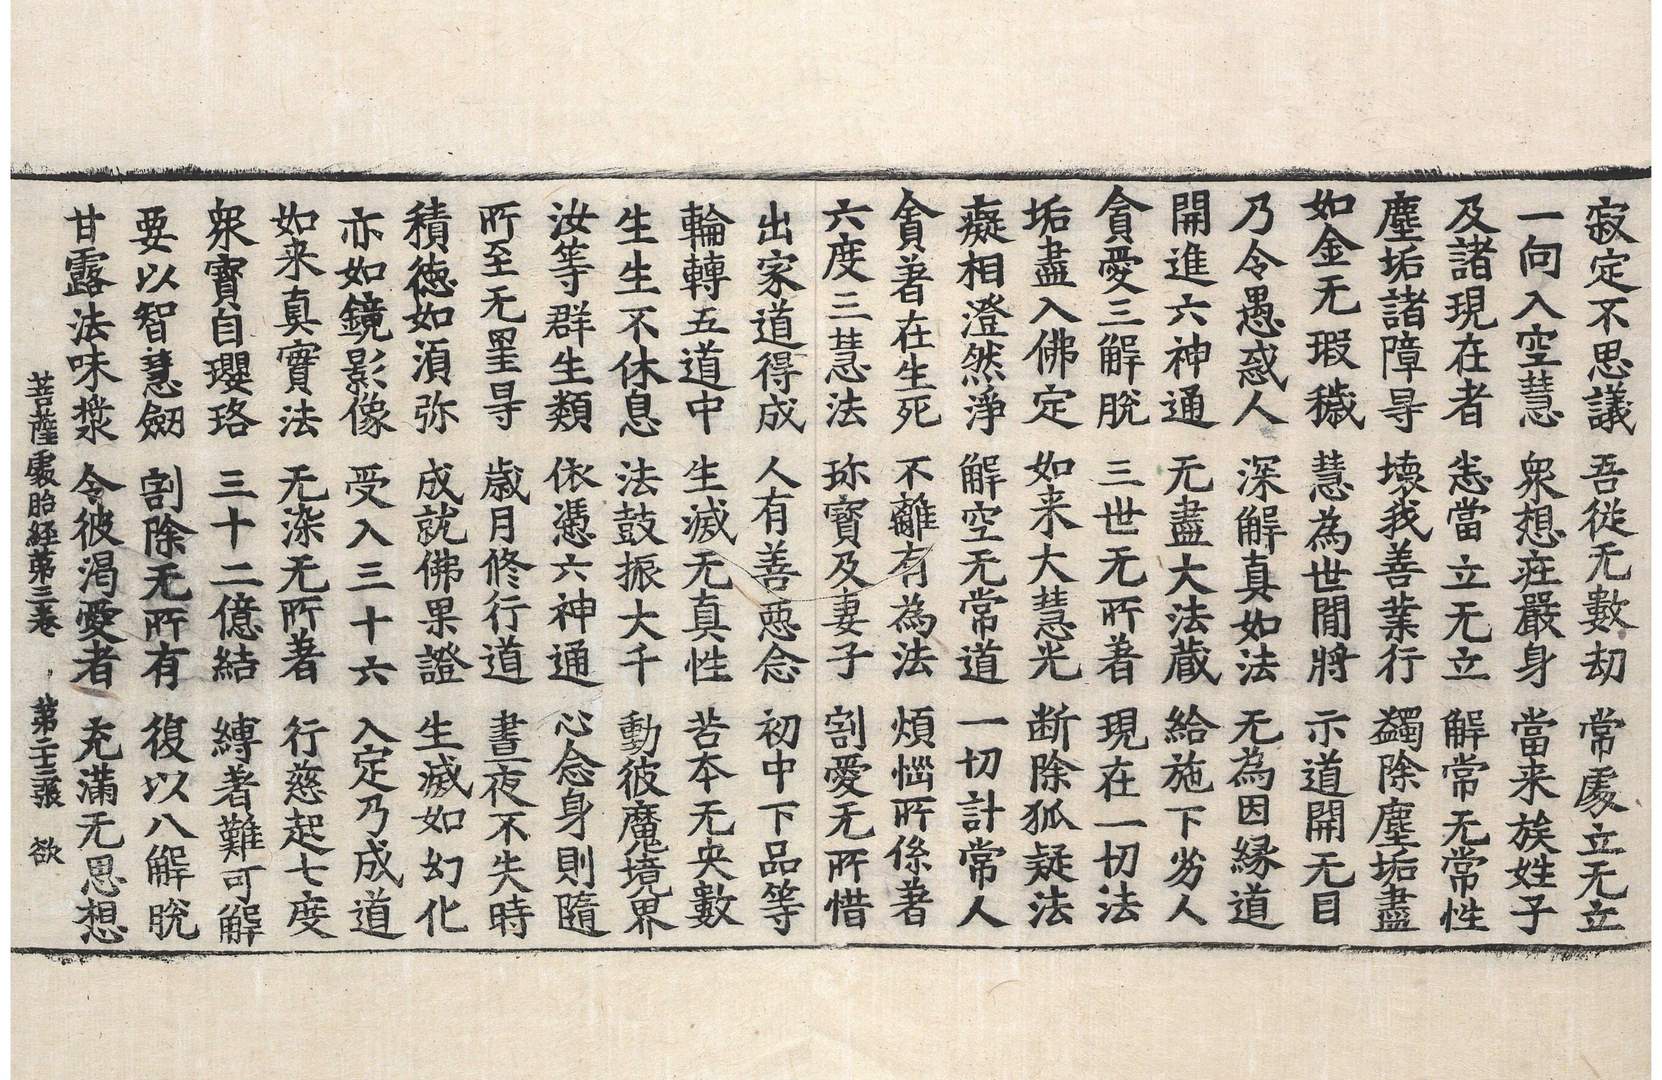 寂定不思議 吾從无數劫 常處立无立
一向入空慧 衆想莊嚴身 當来族姓子
及諸現在者 恙當立无立 解常无常性
塵垢諸障㝵 壊我善業行 蠲除塵垢盡
如金无瑕穢 慧為世間將 示道開无目
乃令愚惑人 深解真如法 无為因縁道
開進六神通 无盡大法蔵 給施下劣人
貪愛三解脫 三世无所著 現在一切法
垢盡入佛定 如来大慧光 断除狐疑法
癡相澄然淨 解空无常道 一切計常人
貪著在生死 不離有為法 煩惱所係著
六度三慧法 珎寳及妻子 割愛无所惜
出家道得成 人有善惡念 初中下品等
輪轉五道中 生滅无真性 苦本无央數
生生不休息 法鼓振大千 動彼魔境界
汝等群生類 依憑六神通 心念身則隨
所至无罣㝵 歳月修行道 晝夜不失時
積徳如湏弥 成就佛果證 生滅如幻化
亦如鏡影像 受入三十六 入定乃成道
如来真實法 无染无所著 行慈起七度
衆寳自瓔珞 三十二億結 縛著難可解
要以智慧劒 割除无所有 復以八解脫
甘露法味漿 令彼渴愛者 充滿无恩想
菩薩處胎経第三卷 第二十三張 欲